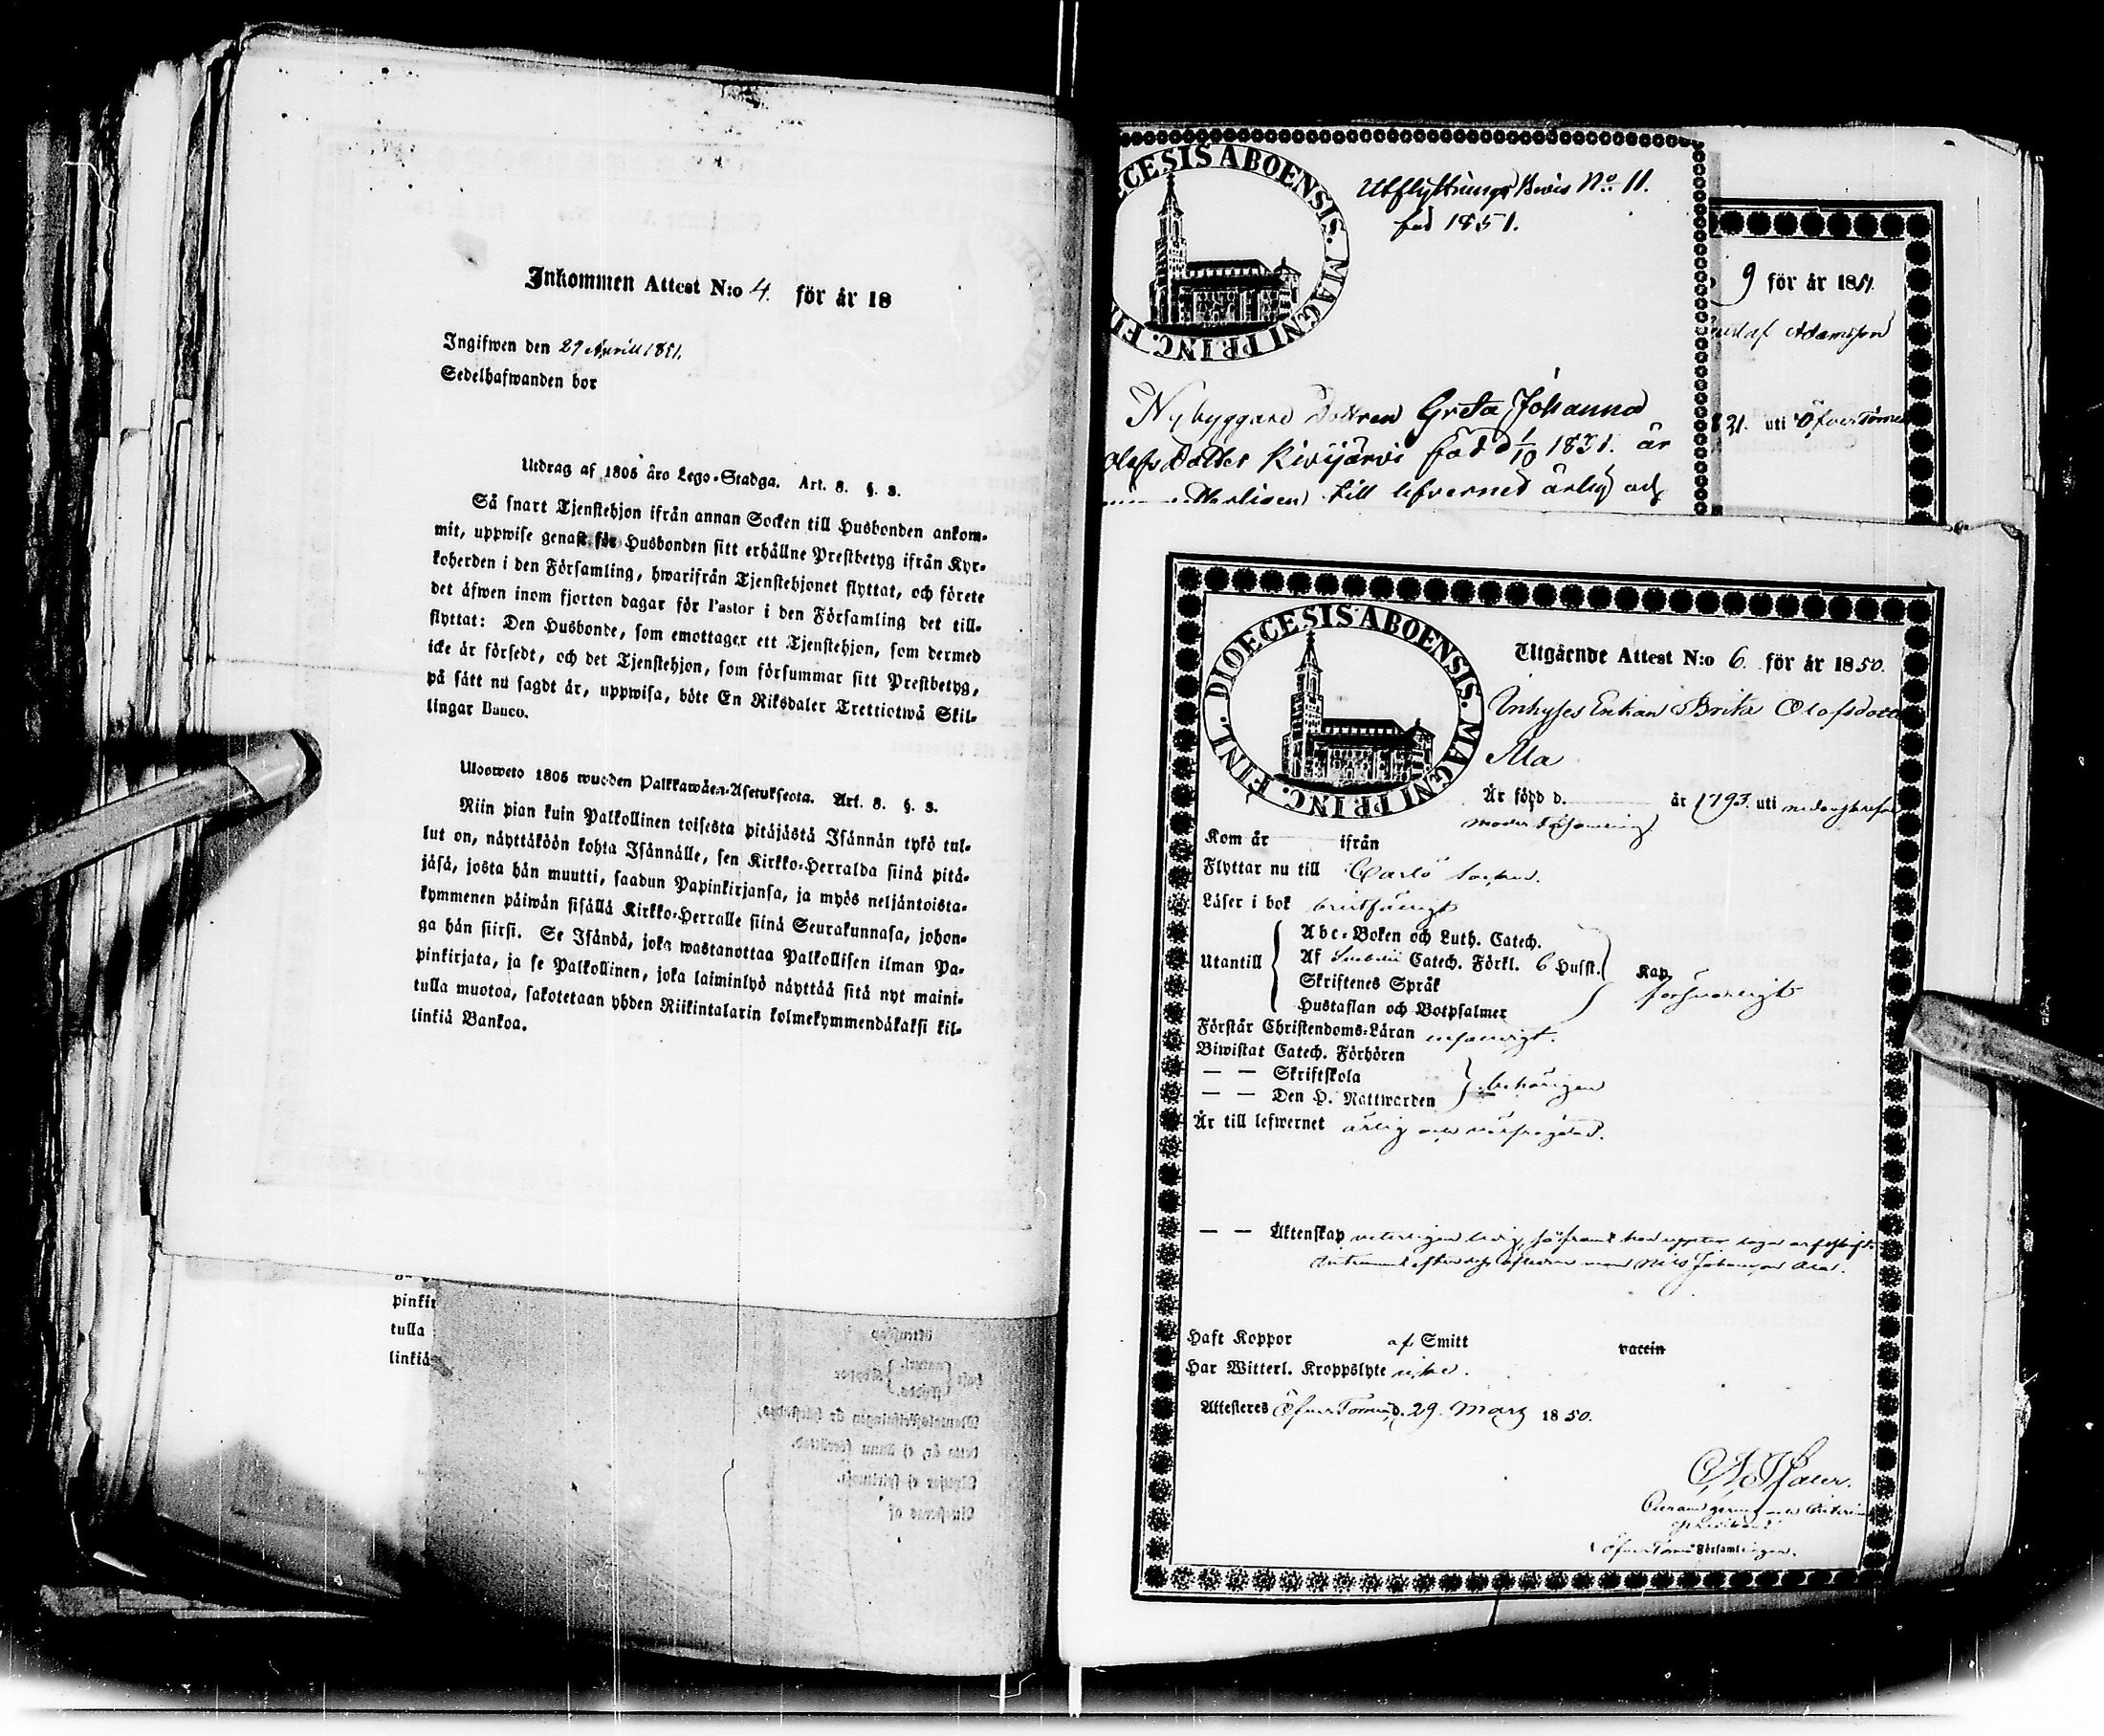 Inkommen Attest N:o 4. för år 18
Ingifwen den 29 Aprill 1851.
Sedelhafwanden bor
Utdrag af 1805 års Lego-Stadga. Art. 8. §. 3.
Så snart Tjenstehjon ifrån annan Socken till Husbonden ankom-
mit, uppwise genast för Husbonden sitt erhållne Prestbetyg ifrån Kyr-
koherden i den Församling, hwarifrån Tjenstehjonet flyttat, och förete
det äfwen inom fjorton dagar för Pastor i den Församling det till-
flyttat: Den Husbonde, som emottager ett Tjenstehjon, som dermed
icke är försedt, och det Tjenstehjon, som försummar sitt Prestbetyg,
på sätt nu sagdt är, uppwisa, böte En Riksdaler Trettiotwå Skil-
lingar Banco.
Ulosweto 1805 wuoden Palkkawäen-Asetuksesta. Art. 8. §. 3.
Niin pian kuin Palkollinen toisesta pitäjästä Isännän tykö tul-
lut on, näyttäköön kohta Isännälle, sen Kirkko-Herralda siinä pitä-
jäsä, josta hän muutti, saadun Papinkirjansa, ja myös neljäntoista-
kymmenen päiwän sisällä Kirkko-Herralle siinä Seurakunnasa, johon-
ga hän siirsi. Se Isändä, joka wastanottaa Palkollisen ilman Pa-
pinkirjata, ja se Palkollinen, joka laiminlyö näyttää sitä nyt maini-
tulla muotoa, sakotetaan yhden Riikintalarin kolmekymmendäkaksi kil-
linkiä Bankoa.
pinkir
tulla
linkiä
CESIS ABOENSIS. MAGNI PRINC. FI
Utflyttnings Bevis No. 11.
för 1851.
Nybyggare Dottren Greta Johanna
Olofs Dotter Kivijärvi född d 1/10 1831. är
till lefvernet ärlig och
9 för år 1851.
Adamsson
21. uti Öfver Torne
DIOECESIS ABOENSIS. MAGNI PRINC. FINL.
Utgående Attest N:o 6. för år 1850.
Inhyses Enkan Brita Olofsdotter
Ala
Är född d. år 1793. uti
moder Församling
Kom år ifrån
Flyttar nu till Carlö Socken.
Läser i bok
Utantill
Abc-Boken och Luth. Catech.
Af Svebilii Catech. Förkl. 6 Hufst. Kap
Skriftenes Språk försvarligt
Hustaflan och Botpsalmer
Förstår Christendoms-Läran enfaldigt.
Biwistat Catech. Förhören
— — Skriftskola behörigen
— — Den H. Nattwarden
Är till lefwernet ärlig och
— — Äktenskap veterligen ledig, såframt hon
man Nils Johansson Ala.
Haft Koppor af Smitt vaccin
Har Witterl. Kroppslyte icke.
Attesteras Öfver Torneå d. 29. Mars 1850.
Öfver Torne Församlingen.